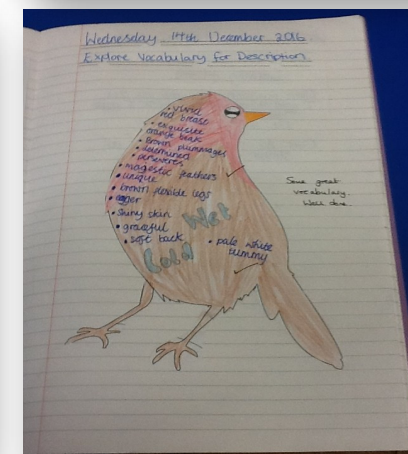 Wednesday 14th December 2016
Explore Vocabulary for Description
• vivid
red breast
• exquisite
orange beak
• Brown plummages
• determined
• persevere
• magestic feathers
• unique
• brown flexible legs
• eager
• shiny skin
• graceful
• soft back
Wet
Cold
• pale white
tummy
Some great
vocabulary.
Well done.